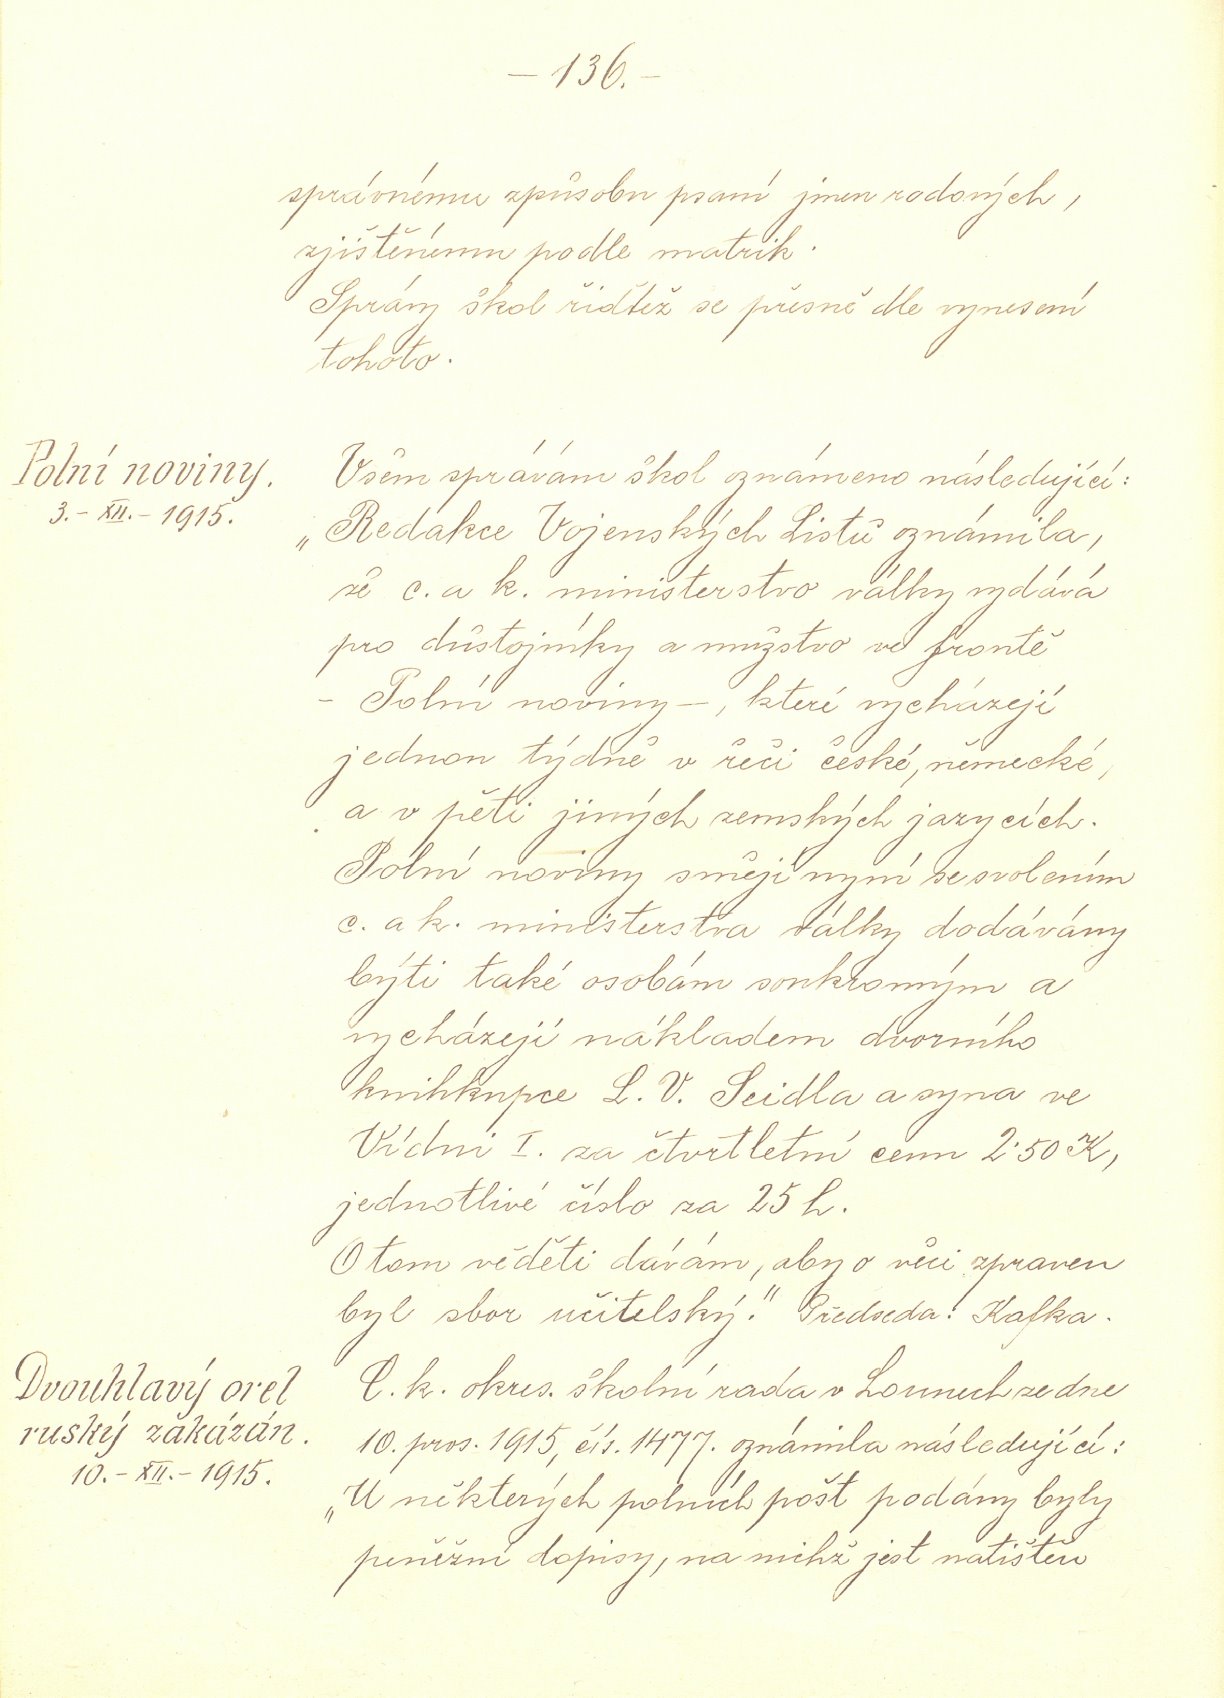 — 136. —
správnému způsobu psaní jmen rodových,
zjištěnému podle matrik.
Správy škol řidtež se přesně dle vynesení
tohoto.
Polní noviny.
3. – XII. – 1915.
Všem správám škol oznámeno následující:
„Redakce Vojenských Listů oznámila,
že c. a k. ministerstvo války vydává
pro důstojníky a mužstvo ve frontě
– Polní noviny –, které vycházejí
jednou týdně v řeči české, německé,
a v pěti jiných zemských jazycích.
Polní noviny smějí nyní se svolením
c. a k. ministerstva války dodávány
býti také osobám soukromým a
vycházejí nákladem dvorního
knihkupce L. V. Seidla a syna ve
Vídni I. za čtvrtletní cenu 2·50 K,
jednotlivé číslo za 25 h.
O tom věděti dávám, aby o věci zpraven
byl sbor učitelský." Předseda: Kafka.
Dvouhlavý orel
ruský zakázán.
10. – XII. – 1915.
C. k. okres. školní rada v Lounech ze dne
10. pros. 1915, čís. 1477. oznámila následující:
„U některých polních pošt podány byly
peněžní dopisy, na nichž jest natištěn